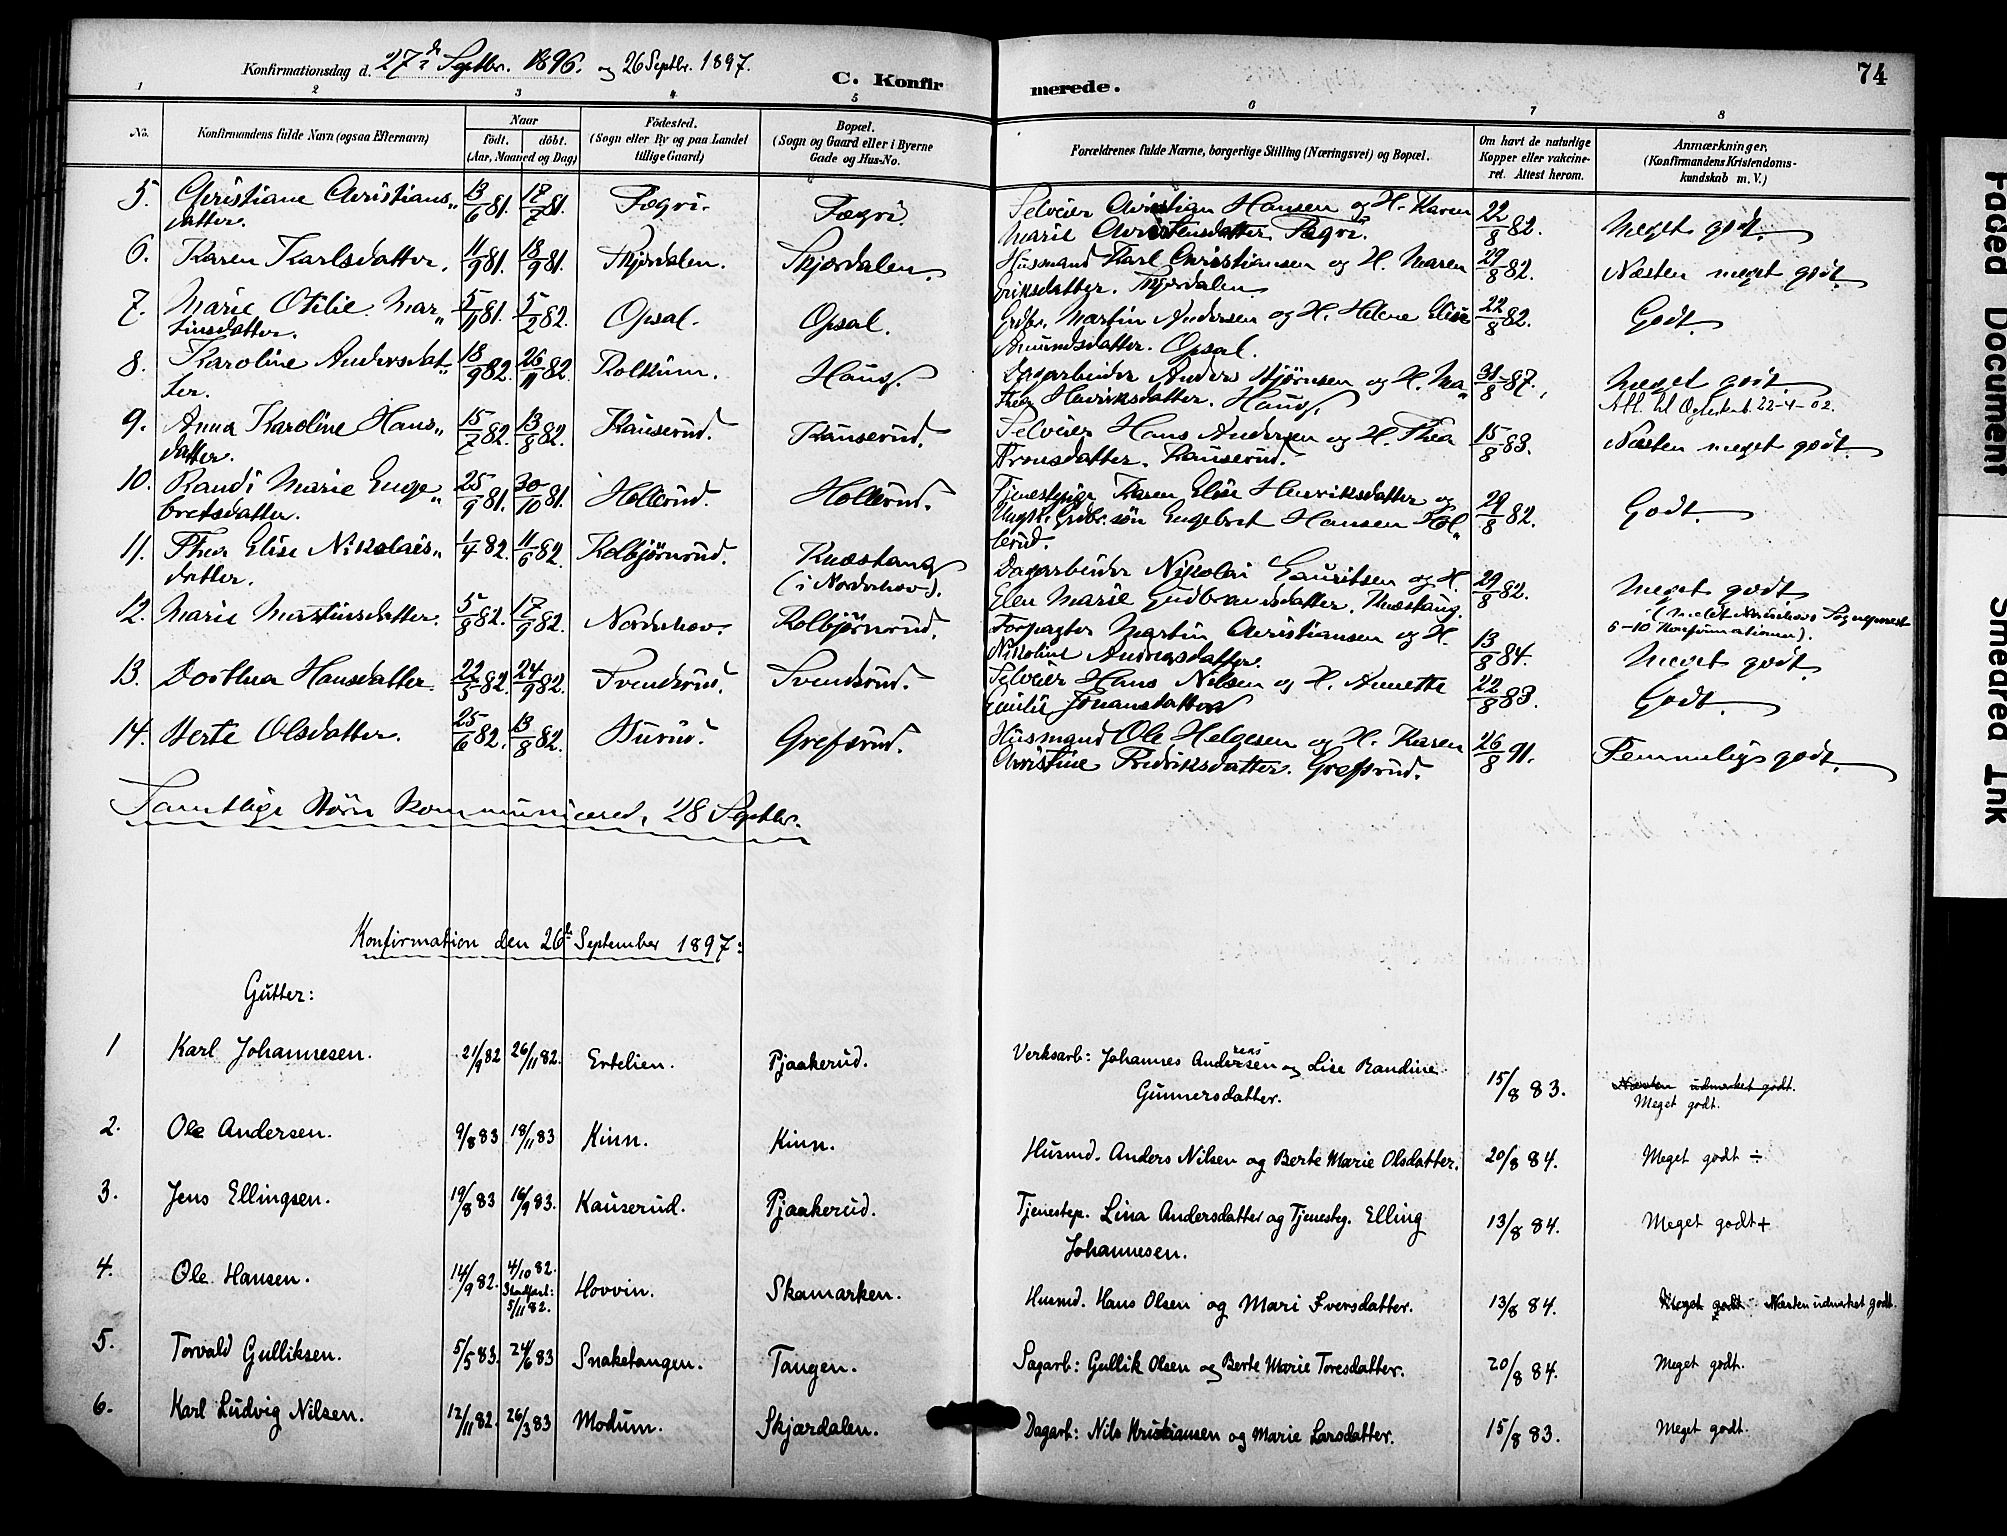 Konfirmationsdag d. 27de Septbr. 1896. og 26 Septbr. 1897.
C. Konfirmerede.
74
1 2 3 4 5 6 7 8
No. Konfirmandens fulde Navn (ogsaa Efternavn) Naar født. døbt. (Aar, Maaned og Dag) Fødested. (Sogn eller By og paa Landet tillige Gaard) Bopæl. (Sogn og Gaard eller i Byerne Gade og Hus-No. Forældrenes fulde Navne, borgerlige Stilling (Næringsvei) og Bopæl. Om havt de naturlige Kopper eller vakcineret. Attest herom. Anmærkninger. (Konfirmandens Kristendomskundskab m. V.)
5. Christiane Christians„ 13/6 81. 17/7 81. Fægri. Fægri. Selveier Christian Hansen og H. Karen 22/8 82. Meget godt.
datter. Marie Christensdatter Fægri.
6. Karen Karlsdatter. 11/9 81. 18/9 81. Skjørdalen. Skjærdalen. Husmand Karl Christiansen og H. Maren 29/8 82. Næsten meget godt.
Eriksdatter. Skjørdalen
7. Marie Otilie Mar„ 5/11 81. 5/2 82. Opsal. Opsal. Grdbr. Martin Andersen og H. Helene Elise 22/8 82. Godt
tinsdatter. Amundsdatter. Opsal.
8. Karoline Andersdat„ 18/9 82. 26/11 82. Rolkum. Haug. Dagarbeider Anders Bjørnsen og H. Ma„ 31/8 87. Meget godt.
ter. thea Henriksdatter. Haug. Att. til 22-4-02.
9. Anna Karoline Hans„ 15/7 82. 13/8 82. Kauserud. Kauserud. Selveier Hans Andersen og H. Thea 15/8 83. Næsten meget godt
datter. Aronsdatter. Kauserud.
10. Randi Marie Enge„ 25/9 81. 30/10 81. Hollerud. Hollerud. Tjenestepige Karen Elise Henriksdatter og 29/8 82. Godt.
bretsdatter. Ungk. Grdbr.søn Engebret Hansen Hol„
lerud.
11. Thea Elise Nikolais„ 1/4 82. 11/6 82. Kolbjørnrud. Knæstang Dagarbeider Nikolai Lauritsen og H. 29/8 82. Meget godt
datter. (i Norderhov). Elen Marie Gudbrandsdatter. Knæstang. (meldt Norderhovs Sogneprest
6-10 Konfirmationen).
12. Marie Martinsdatter. 5/8 82. 17/9 82. Norderhov. Kolbjørnrud. Forpagter Martin Christiansen og H. 13/8 84. Meget godt.
Nikoline Andersdatter.
13. Dorthea Hansdatter 22/5 82. 24/9 82. Svendsrud. Svendsrud. Selveier Hans Nilsen og H. Annette 22/8 83. Godt.
Emilie Johansdatter
14. Berte Olsdatter. 25/6 82. 13/8 82. Burud. Grefsrud. Husmand Ole Helgesen og H. Karen 26/8 91. Temmelig godt.
Christine Fredriksdatter. Grefsrud.
Samtlige Børn kommunicered. 28 Septbr.
Konfirmation den 26de September 1897:
Gutter:
1 Karl Johannesen. 21/9 82 26/11 82. Ertelien. Pjaakerud. Verksarb: Johannes Andersen og Lise Randine 15/8 83. Næsten udmerket godt.
Gunnersdatter. Meget godt.
2. Ole Andersen. 9/8 83 18/11 83 Kinn. Kinn. Husmd. Anders Nilsen og Berte Marie Olsdatter. 20/8 84. Meget godt ÷
3. Jens Ellingsen. 19/8 83 16/9 83. Kauserud. Pjaakerud. Tjenestep. Lina Andersdatter og Tjenestg. Elling 13/8 84. Meget godt +
Johannesen.
4. Ole Hansen. 14/9 82. 4/10 82. Stadfæst: 5/11 82. Hovvin. Skamarken. Husmd. Hans Olsen og Mari Iversdatter. 13/8 84. Meget godt. Næsten udmerket godt.
5. Torvald Gulliksen. 5/5 83. 24/6 83 Snaketangen. Tangen. Sagarb: Gullik Olsen og Berte Marie Toresdatter. 20/8 84. Meget godt.
6. Karl Ludvig Nilsen. 12/11 82. 26/3 83 Modum. Skjærdalen. Dagarb: Nils Kristiansen og Marie Larsdatter. 15/8 83. Meget godt.
Faded Document
Smeared Ink